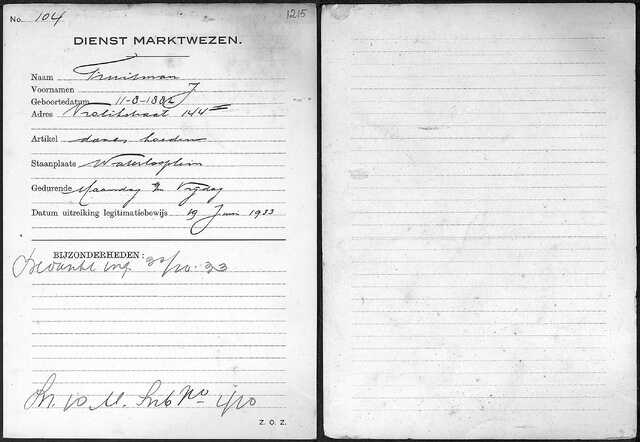 No. 104 1215
DIENST MARKTWEZEN.
Naam Fruitman
Voornamen J
Geboortedatum 11-8-1882
Adres 144 II
Artikel dames hoeden
Staanplaats Waterlooplein
Gedurende Maandag Vrijdag
Datum uitreiking legitimatiebewijs 19 Juni 1933
BIJZONDERHEDEN:
ing /10.33
No 4/10
Z. O. Z.